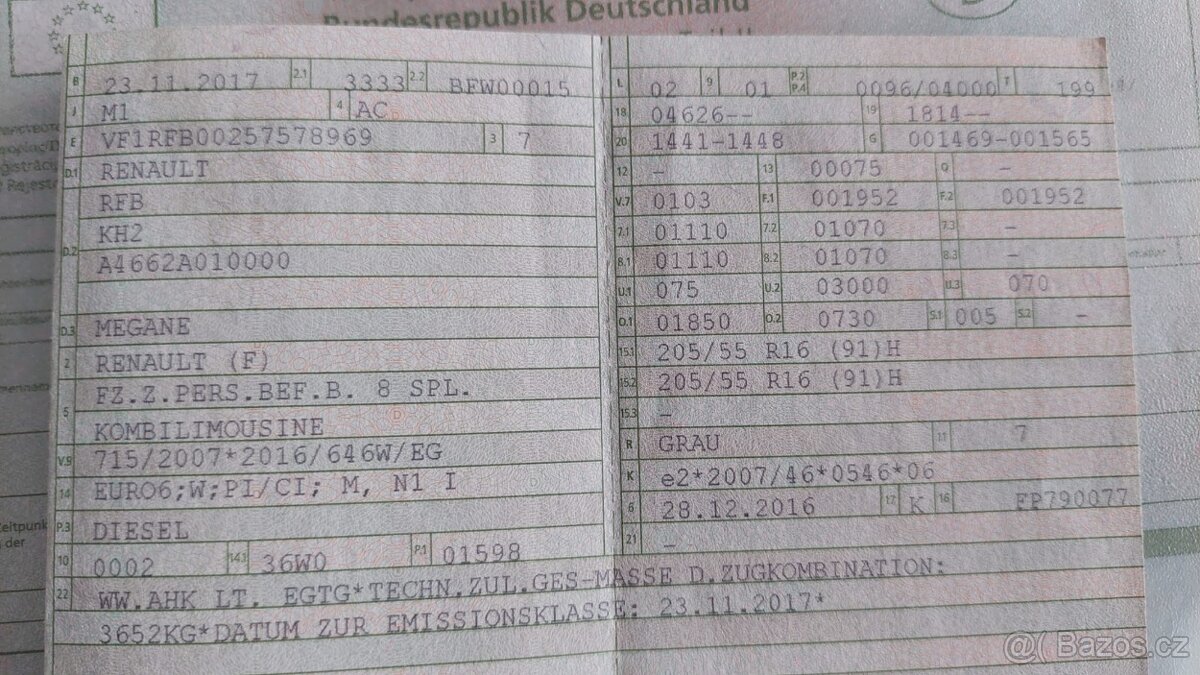 Bundesrepublik Deutschland
B 23.11.2017 2.1 3333 2.2 BFW00015
J M1 4 AC
E VF1RFB00257578969 3 7
D.1 RENAULT
RFB
D.2 KH2
A4662A010000
D.3 MEGANE
2 RENAULT (F)
5 FZ.Z.PERS.BEF.B. 8 SPL.
KOMBILIMOUSINE
V.9 715/2007*2016/646W/EG
14 EURO6;W;PI/CI; M, N1 I
P.3 DIESEL
10 0002 14.1 36W0 P.1 01598
L 02 9 01 P.2 P.4 0096/04000 T 199
18 04626-- 19 1814--
20 1441-1448 G 001469-001565
12 - 13 00075 Q -
V.7 0103 F.1 001952 F.2 001952
7.1 01110 7.2 01070 7.3 -
8.1 01110 8.2 01070 8.3 -
U.1 075 U.2 03000 U.3 070
O.1 01850 O.2 0730 S.1 005 S.2 -
15.1 205/55 R16 (91)H
15.2 205/55 R16 (91)H
15.3 -
R GRAU 11 7
K e2*2007/46*0546*06
6 28.12.2016 17 K 16 FP790077
21 -
22 WW.AHK LT. EGTG*TECHN.ZUL.GES-MASSE D.ZUGKOMBINATION:
3652KG*DATUM ZUR EMISSIONSKLASSE: 23.11.2017*
Zeitpunk
n der
@( Bazos.cz